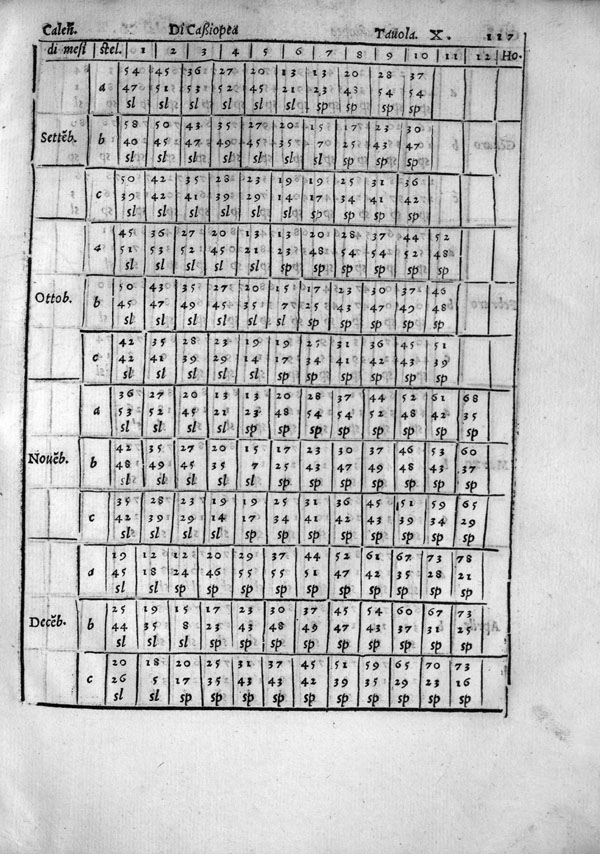 Caleñ. Di Caßiopea Tauola. X. 117
di mesi stel. 1 2 3 4 5 6 7 8 9 10 11 12 Ho.
54 45 36 27 20 13 13 20 28 37
a 47 51 53 52 45 21 23 43 54 54
sl sl sl sl sl sl sp sp sp sp
58 50 43 35 27 20 15 17 23 30
Settēb. b 40 45 47 49 45 35 7 25 43 47
sl sl sl sl sl sl sp sp sp sp
50 42 35 28 23 19 19 25 31 36
c 39 42 41 39 29 14 17 34 41 42
sl sl sl sl sl sl sp sp sp sp
45 36 27 20 13 13 20 28 37 44 52
a 51 53 52 45 21 23 48 54 54 52 48
sl sl sl sl sl sp sp sp sp sp sp
50 43 35 27 20 15 17 23 30 37 46
Ottob. b 45 47 49 45 35 7 25 43 47 49 48
sl sl sl sl sl sl sp sp sp sp sp
42 35 28 23 19 19 25 31 36 45 51
c 42 41 39 29 14 17 34 41 42 43 39
sl sl sl sl sl sp sp sp sp sp sp
36 27 20 13 13 20 28 37 44 52 61 68
a 53 52 45 21 23 48 54 54 52 48 42 35
sl sl sl sl sp sp sp sp sp sp sp sp
42 35 27 20 15 17 23 30 37 46 53 60
Nouēb. b 48 49 45 35 7 25 43 47 49 48 43 37
sl sl sl sl sl sp sp sp sp sp sp sp
35 28 23 19 19 25 31 36 45 51 59 65
c 42 39 29 14 17 34 41 42 43 39 34 29
sl sl sl sl sp sp sp sp sp sp sp sp
19 12 12 20 29 37 44 52 61 67 73 78
a 45 18 24 46 55 55 51 47 42 35 28 21
sl sl sp sp sp sp sp sp sp sp sp sp
25 19 15 17 23 30 37 45 54 60 67 73
Decēb. b 44 35 8 23 43 48 49 47 43 37 31 25
sl sl sl sp sp sp sp sp sp sp sp sp
20 18 20 25 31 37 45 51 59 65 70 73
c 26 5 17 35 43 43 42 39 35 29 23 16
sl sl sp sp sp sp sp sp sp sp sp sp